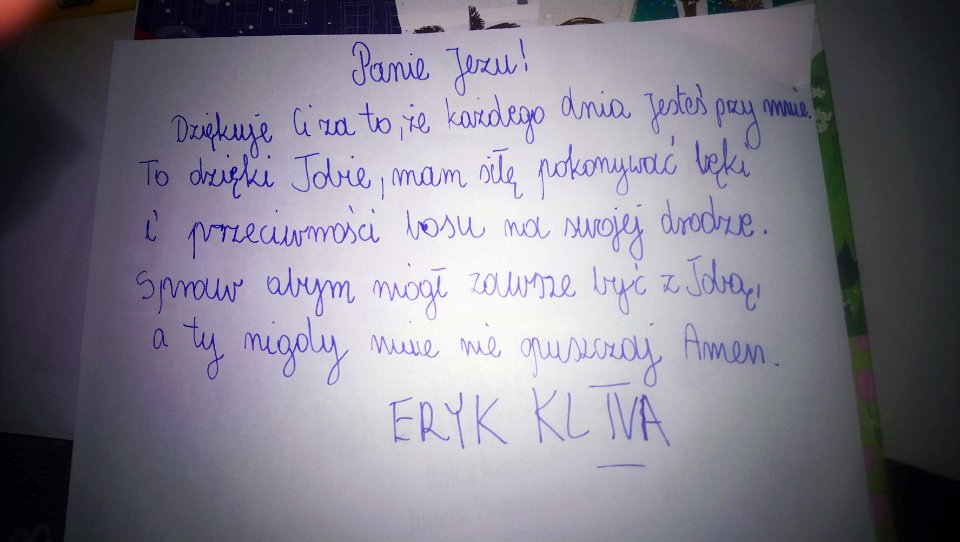 Panie Jezu!
Dziękuję Ci za to, że każdego dnia jesteś przy mnie.
To dzięki Tobie, mam siłę pokonywać lęki
i przeciwności losu na swojej drodze.
Spraw abym mógł zawsze być z Tobą,
a ty nigdy mnie nie opuszczaj Amen.
ERYK KL IVA